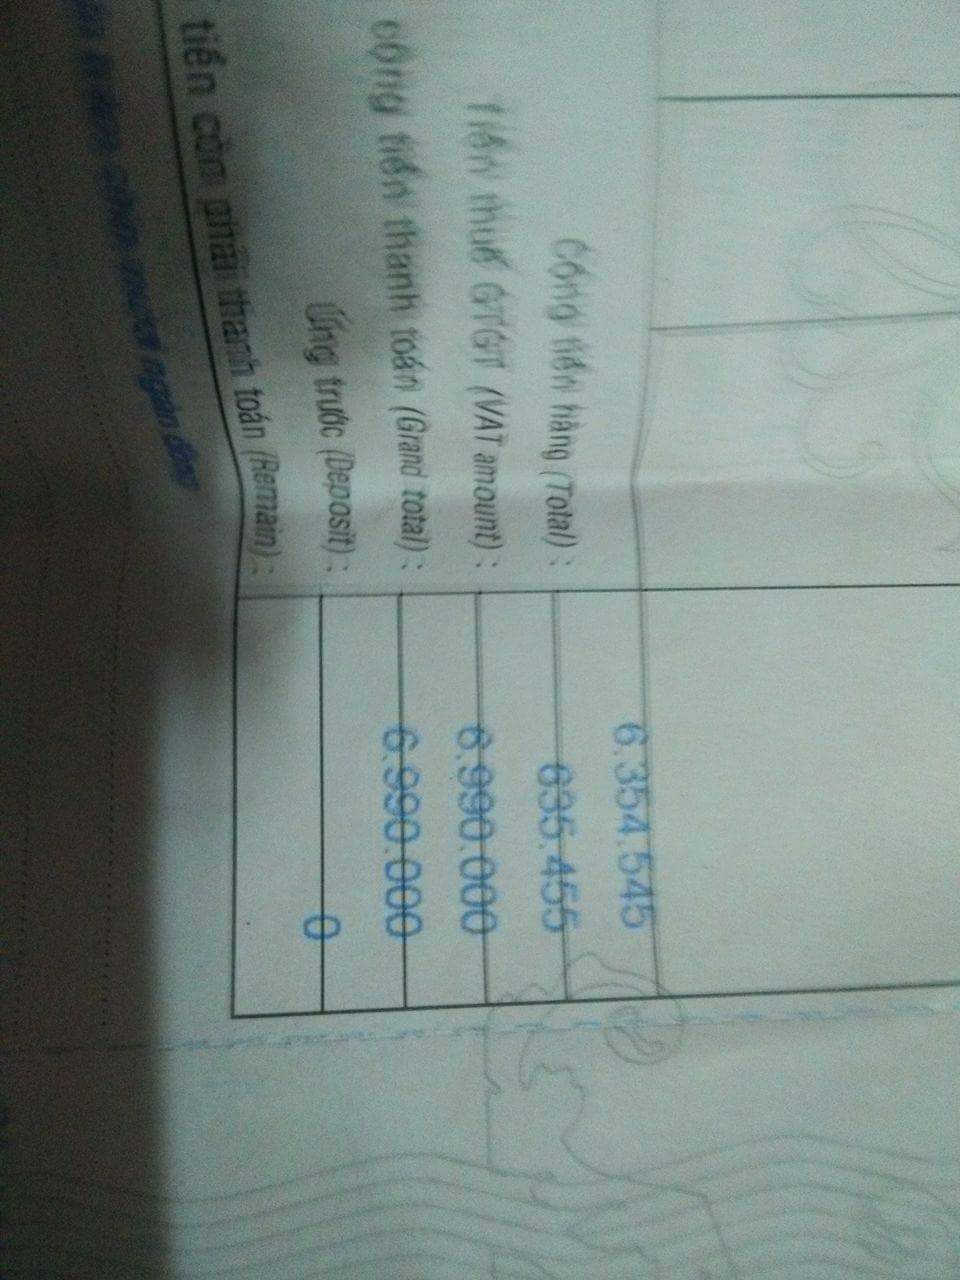 Cộng tiền hàng (Total) : 6.354.545
Tiền thuế GTGT (VAT amount) : 635.455
cộng tiền thanh toán (Grand total) : 6.990.000
Ứng trước (Deposit) : 6.990.000
tiền còn phải thanh toán (Remain) : 0
chín mươi ngàn đồng